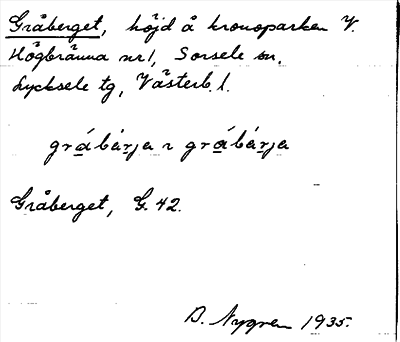 Gråberget, höjd å kronoparken V.
Högbränna nr 1, Sorsele sn,
Lycksele tg, Västerb. l.
gràbárja ɿ gràbárja
Gråberget, G. 42.
D. Nygren 1935.